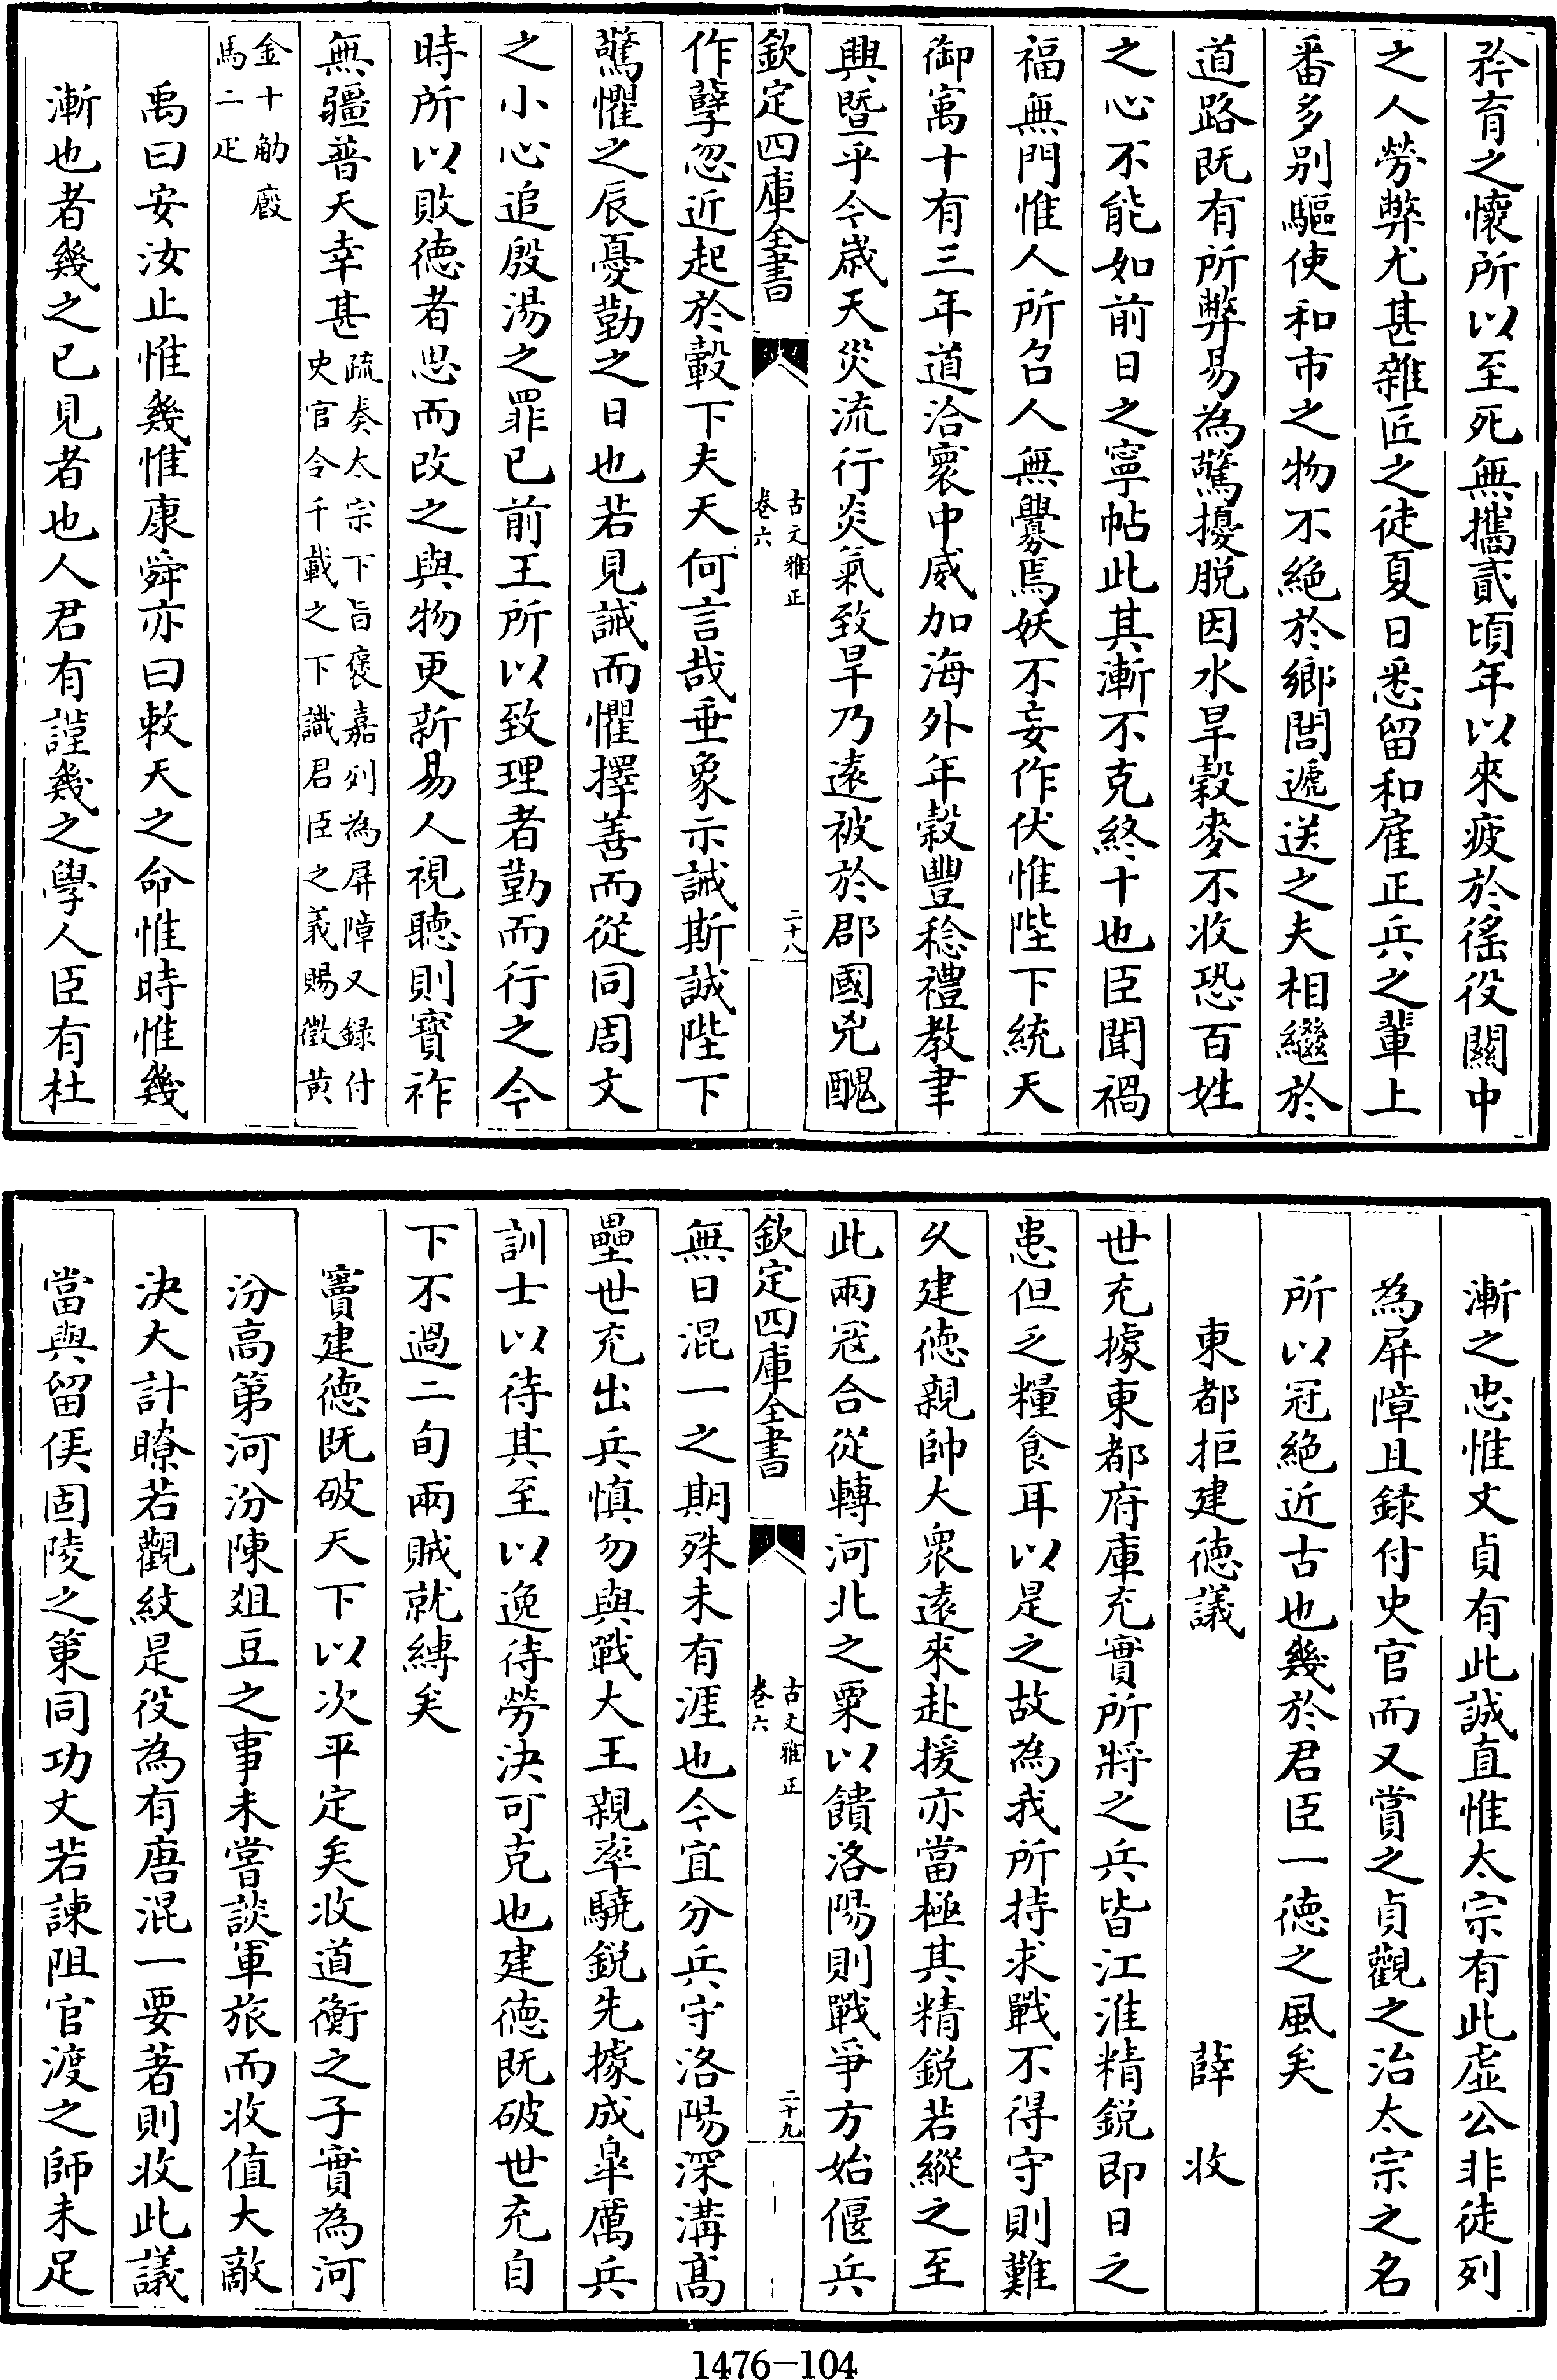 矜育之懷所以至死無攜貳頃年以來疲於徭役關中
之人勞弊尤甚雜匠之徒夏日悉留和雇正兵之輩上
番多别驅使和市之物不絶於鄉閭遞送之夫相繼於
道路既有所弊易為驚擾脱因水旱穀麥不收恐百姓
之心不能如前日之寧帖此其漸不克終十也臣聞禍
福無門惟人所召人無釁焉妖不妄作伏惟陛下統天
御㝢十有三年道洽寰中威加海外年穀豐稔禮教聿
興暨乎今歲天災流行炎氣致旱乃遠被於郡國兇醜
欽定四庫全書
古文雅正
卷六
二十八
作孽忽近起於轂下夫天何言哉垂象示誡斯誠陛下
驚懼之辰憂勤之日也若見誡而懼擇善而從同周文
之小心追殷湯之罪已前王所以致理者勤而行之今
時所以敗德者思而改之與物更新易人視聽則寳祚
無疆普天幸甚
疏奏太宗下旨褒嘉列為屏障又録付
史官令千載之下識君臣之義賜徵黄
金十觔廐
馬二疋
禹曰安汝止惟幾惟康舜亦曰敕天之命惟時惟幾
漸也者幾之已見者也人君有謹幾之學人臣有杜
漸之忠惟文貞有此誠直惟太宗有此虚公非徒列
為屏障且録付史官而又賞之貞觀之治太宗之名
所以冠絶近古也幾於君臣一德之風矣
東都拒建德議
薛收
世充據東都府庫充實所將之兵皆江淮精鋭即日之
患但乏糧食耳以是之故為我所持求戰不得守則難
久建德親帥大衆遠來赴援亦當極其精鋭若縱之至
此兩冦合從轉河北之粟以饋洛陽則戰爭方始偃兵
欽定四庫全書
古文雅正
卷六
二十九
無日混一之期殊未有涯也今宜分兵守洛陽深溝髙
壘世充出兵慎勿與戰大王親率驍鋭先據成臯厲兵
訓士以待其至以逸待勞決可克也建德既破世充自
下不過二旬兩賊就縛矣
竇建德既破天下以次平定矣收道衡之子實為河
汾高第河汾陳爼豆之事未嘗談軍旅而收值大敵
決大計瞭若觀紋是役為有唐混一要著則收此議
當與留侯固陵之策同功文若諫阻官渡之師未足
1476-104